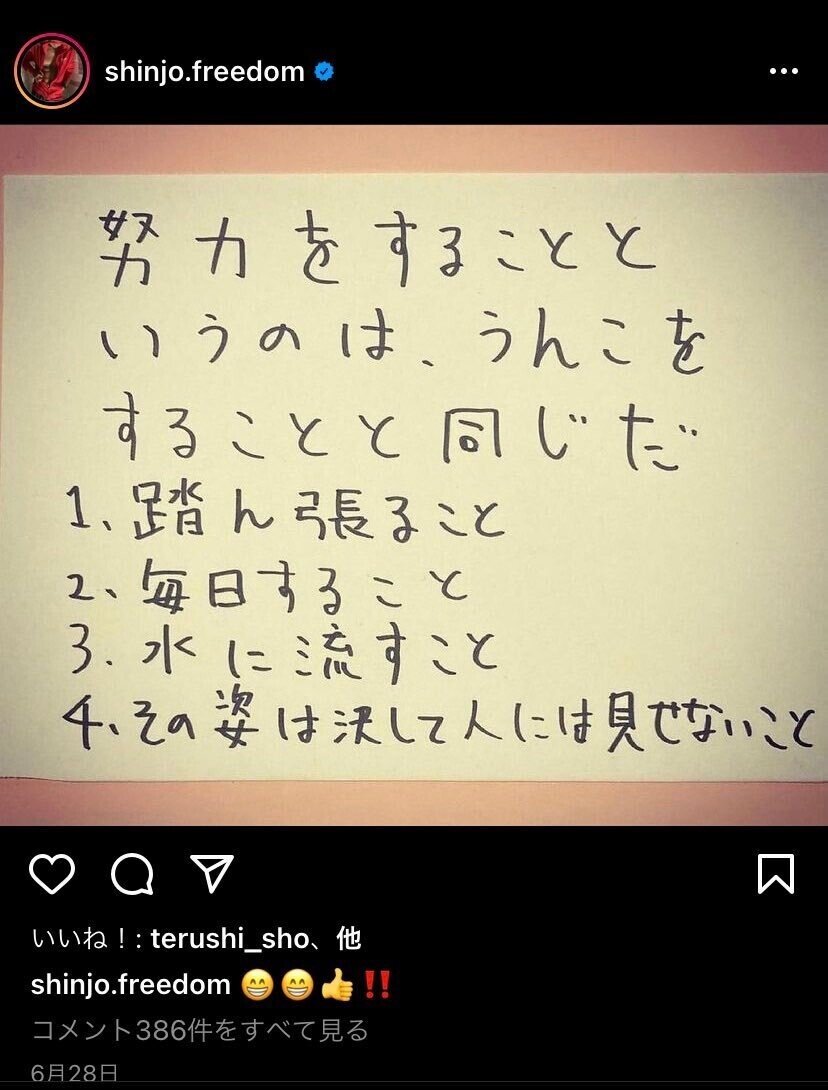 shinjo.freedom
努力をすることと
いうのは、うんこを
することと同じだ
1、踏ん張ること
2、毎日すること
3.水に流すこと
4、その姿は決して人には見せないこと
いいね！: terushi_sho、他
shinjo.freedom 😁😁👍‼️
コメント386件をすべて見る
6月28日